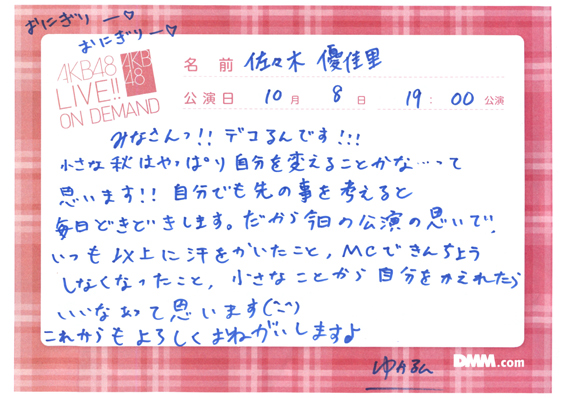 おにぎりー♡
おにぎりー♡
AKB48
LIVE!!
ON DEMAND
AKB
48
名前 佐々木 優佳里
公演日 10月 8日 19:00公演
みなさんっ!! デコるんです!!!
小さな秋はやっぱり自分を変えることかな…って
思います!! 自分でも先の事を考えると
毎日どきどきします。だから今日の公演の思いで、
いつも以上に汗をかいたこと、MCできんちょう
しなくなったこと、小さなことから自分をかえれたら
いいなあって思います(^-^)
これからもよろしくおねがいしますよ
ゆかるん
DMM.com